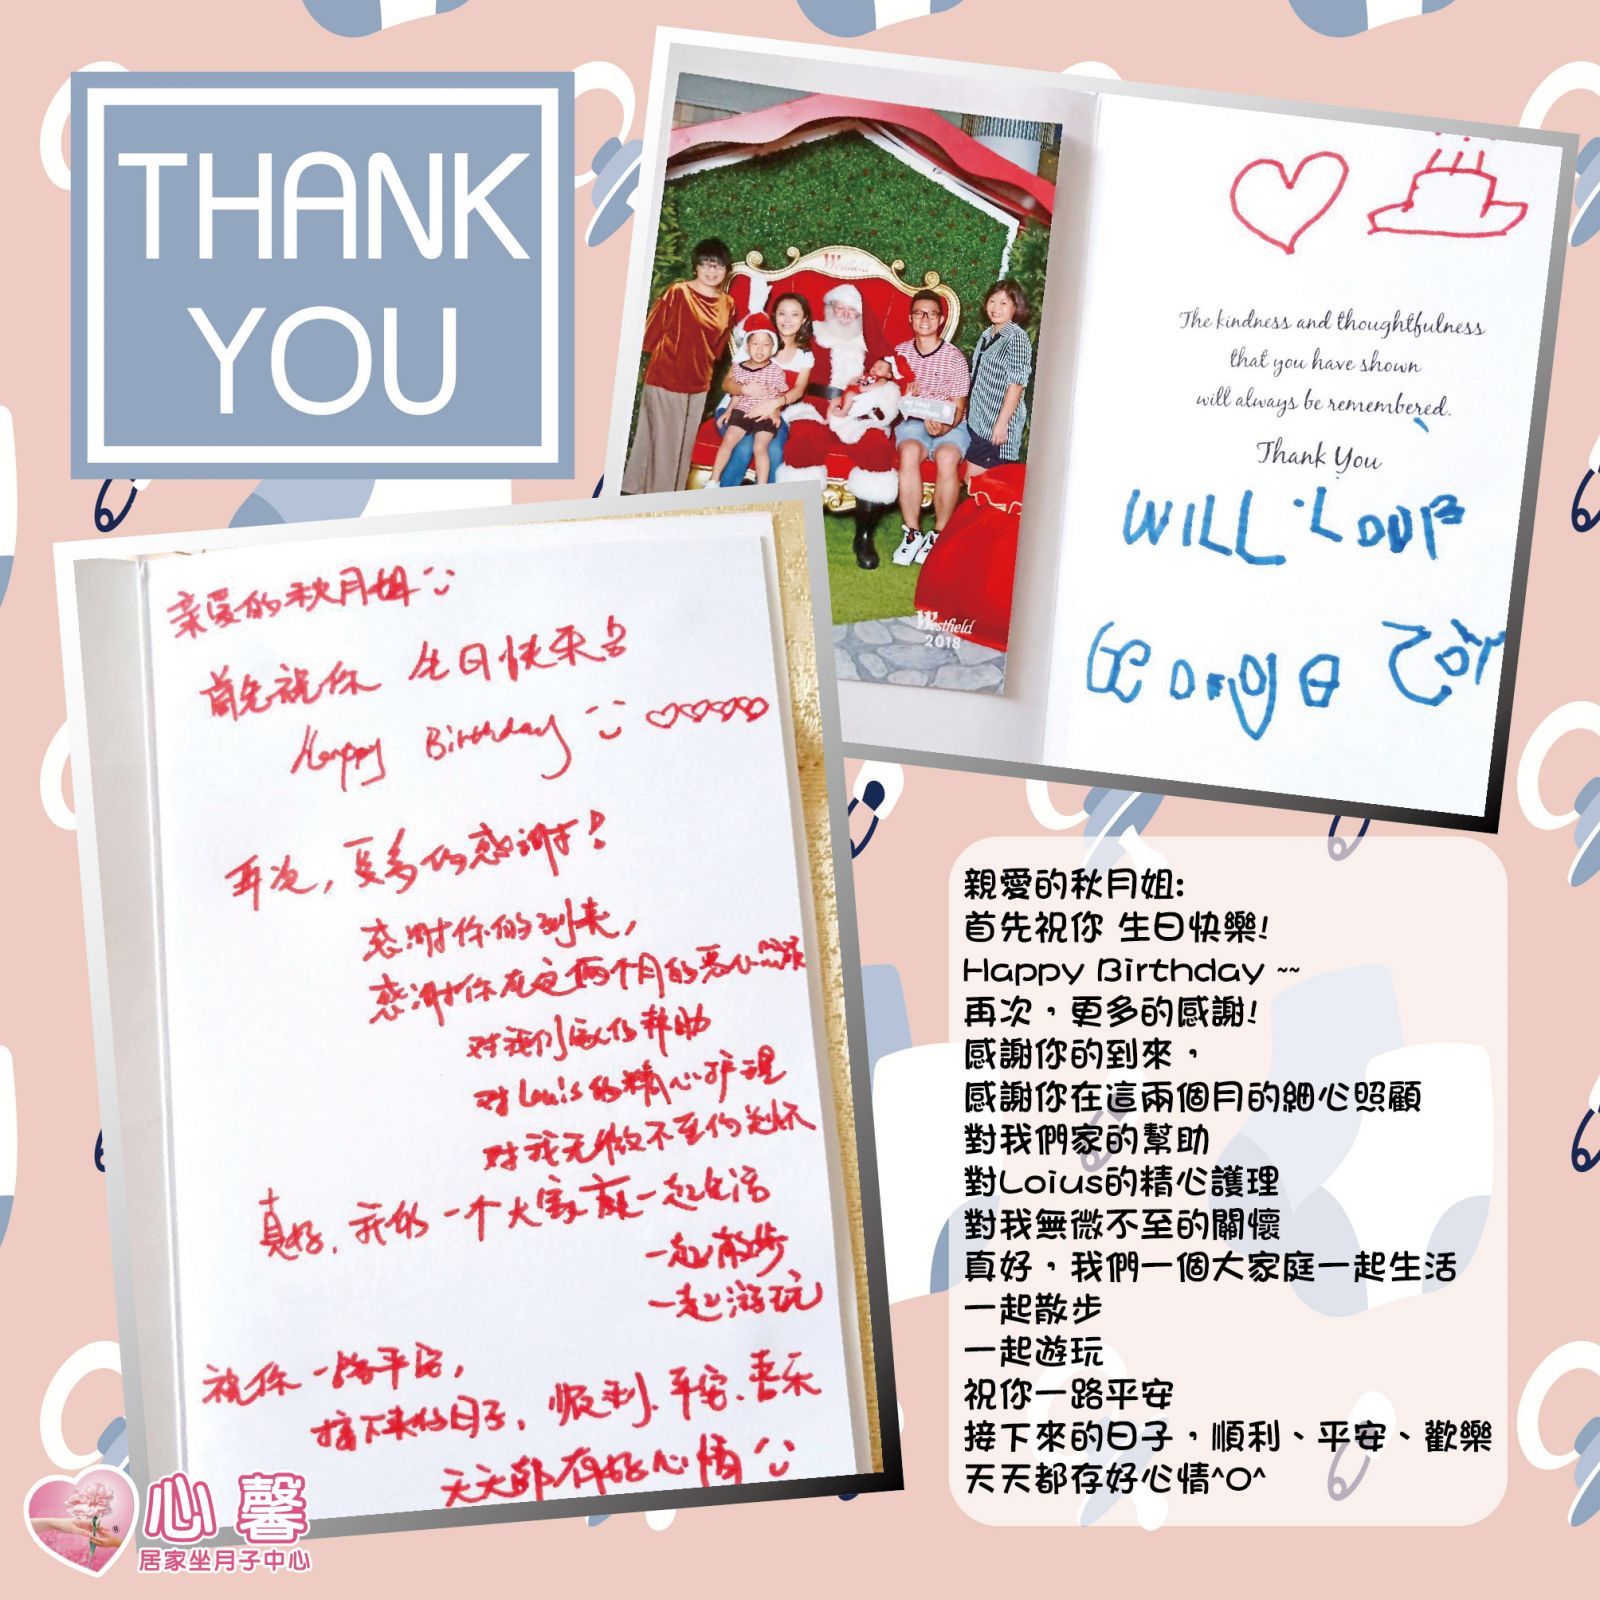 THANK
YOU
Westfield
Westfield
2018
The kindness and thoughtfulness
that you have shown
will always be remembered.
Thank You
WILL
亲爱的秋月姐
首先祝你 生日快乐
Happy Birthday
再次，更多的感谢!
感谢你的到来，
感谢你在这两个月的悉心照顾
对我们家的帮助
对Louis的精心护理
对我无微不至的关怀
真好，我们一个大家庭一起生活
一起散步
一起游玩
祝你一路平安，
接下来的日子，顺利、平安、喜乐
天天都有好心情
親愛的秋月姐:
首先祝你 生日快樂!
Happy Birthday ~~
再次，更多的感謝!
感謝你的到來，
感謝你在這兩個月的細心照顧
對我們家的幫助
對Loius的精心護理
對我無微不至的關懷
真好，我們一個大家庭一起生活
一起散步
一起遊玩
祝你一路平安
接下來的日子，順利、平安、歡樂
天天都存好心情^O^
心馨
居家坐月子中心